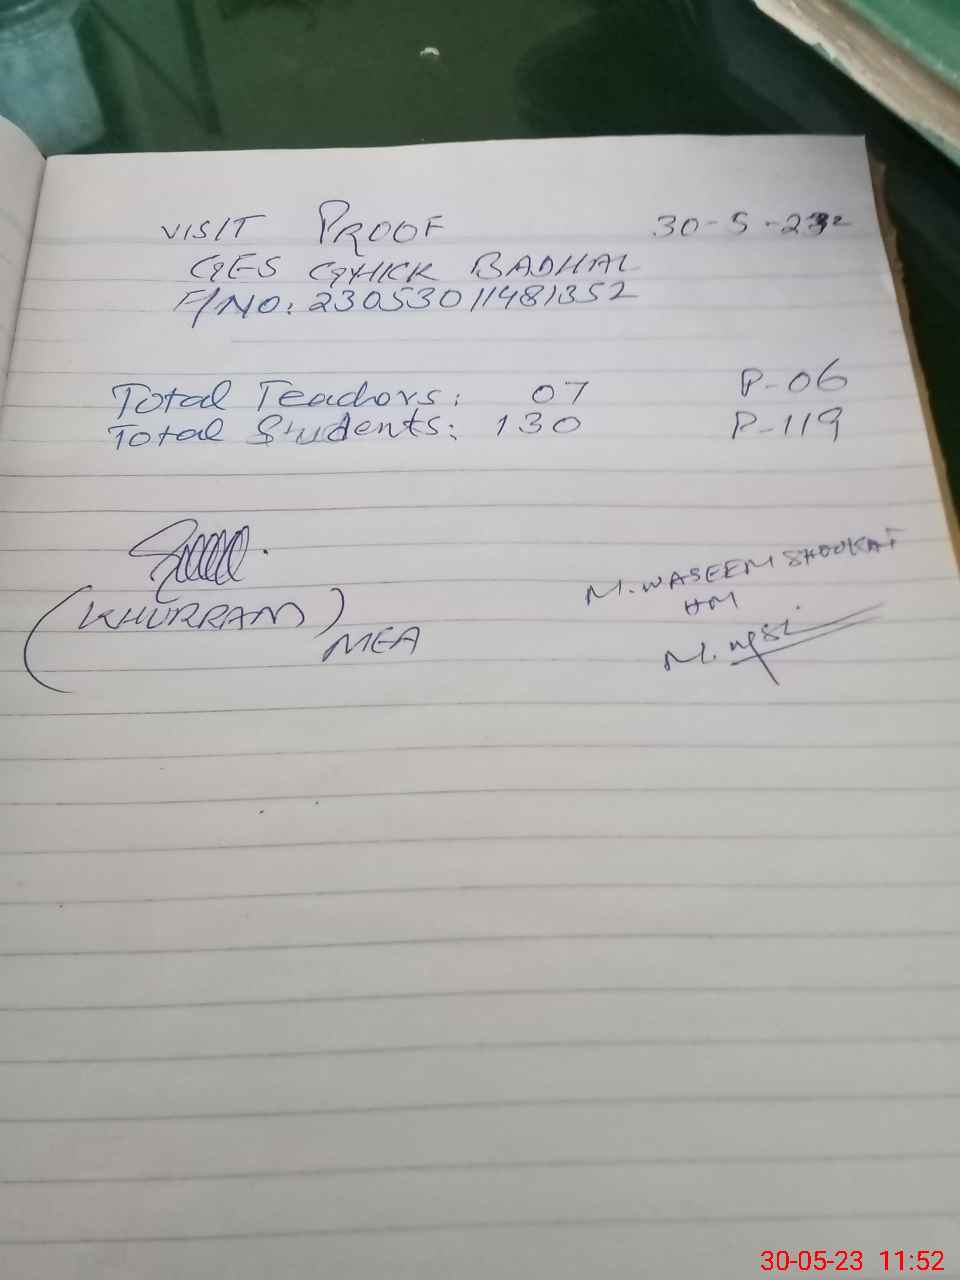 VISIT PROOF 30-5-23
GES GHICK BADHAL
F/NO: 23053011481352
Total Teachors: 07 P-06
Total Students: 130 P-119
(KHURRAM)
MEA
M. WASEEM SHOUKAT
HM
30-05-23 11:52